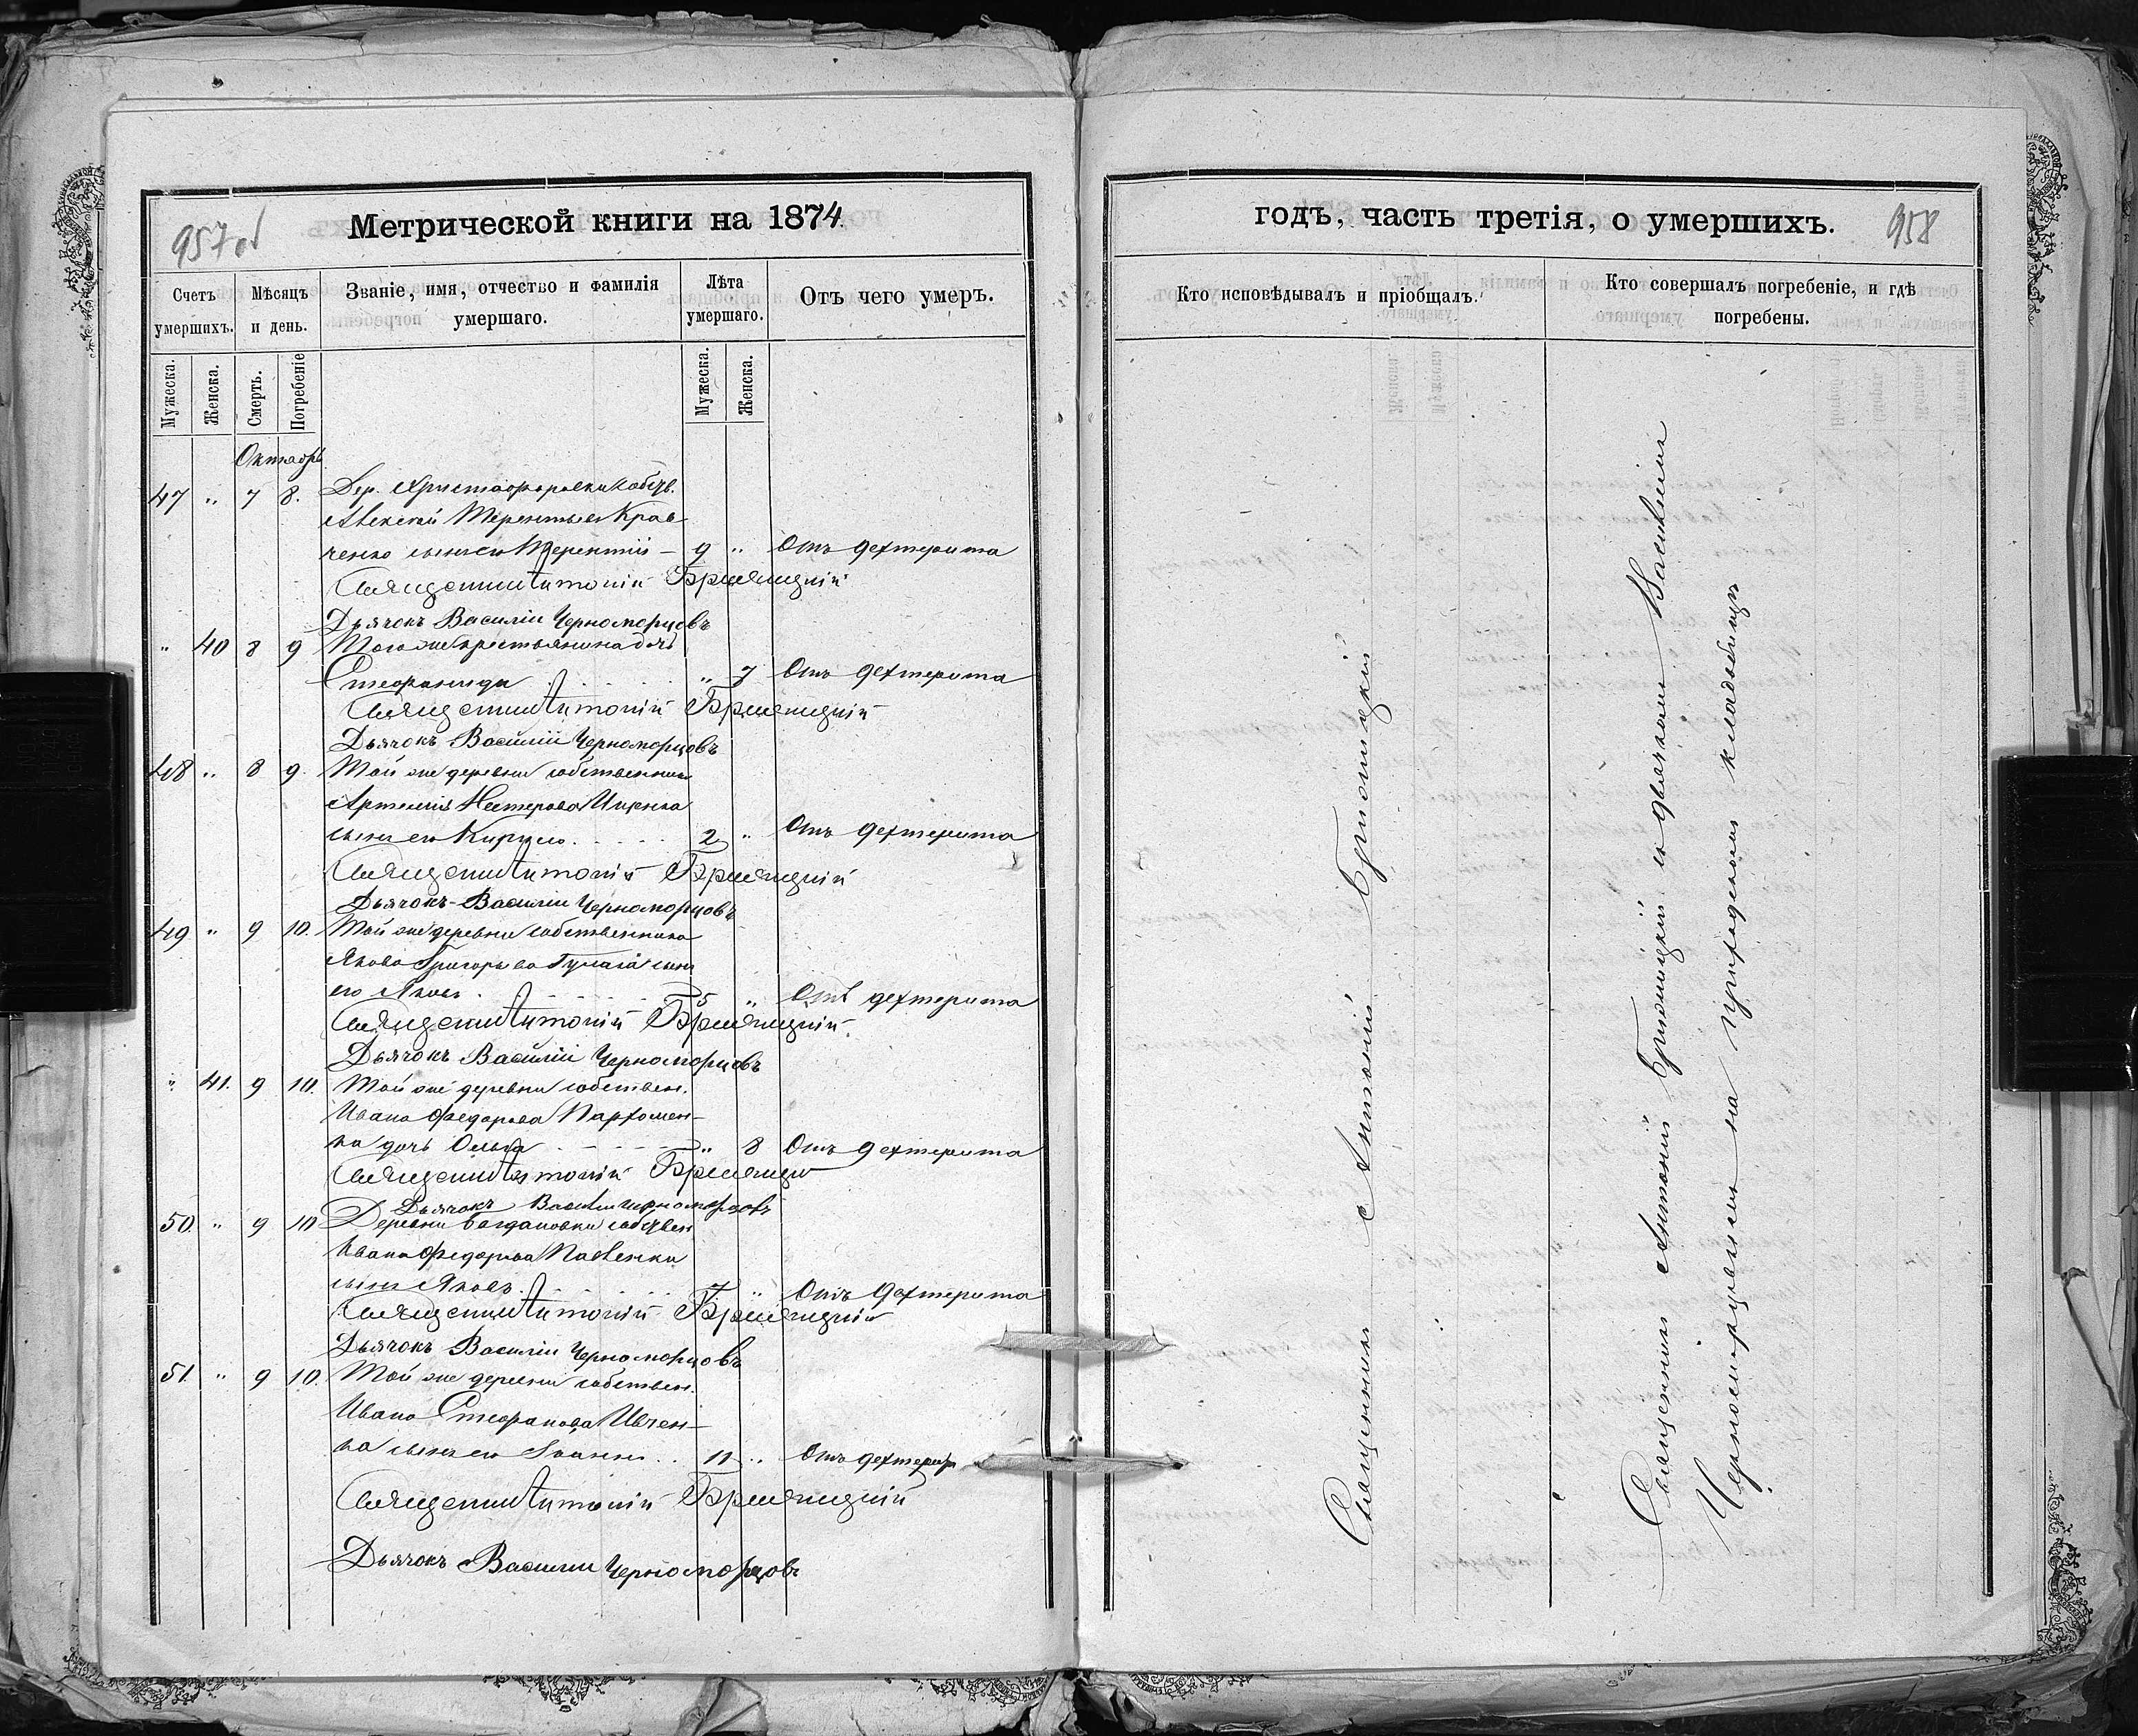 957 об
Метрической книги на 1874.
Счетъ умершихъ.
Мѣсяцъ и день.
Званіе, имя, отчество и фамилія умершаго.
Лѣта умершаго.
Отъ чего умеръ.
Мужеска.
Женска.
Смерть.
Погребеніе
Мужеска.
Женска.
Октябрь
47 " 7 8. Дер. Христофоровки собств.
Алексѣй Терентьевъ Крав
ченко сынъ его Терентій - 9 " Отъ дехтерита
Священникъ Антоній Брионицкій
Дьячокъ Василій Черноморцовъ
" 40 8 9 Того же крестьянина дочь
Стефанида " 7 Отъ дехтерита
Священникъ Антоній Брионицкій
Дьячокъ Василій Черноморцовъ
48 " 8 9. Той же деревни собственника
Артемія Нестерова
сынъ его Кирило 2 " Отъ дехтерита
Священникъ Антоній Брионицкій
Дьячокъ Василій Черноморцовъ
49 " 9 10. Той же деревни собственника
Якова Григорьева сынъ
его Яковъ 5 " Отъ дехтерита
Священникъ Антоній Брионицкій
Дьячокъ Василій Черноморцовъ
" 41. 9 10. Той же деревни собствен.
Ивана Федорова Пархомен-
ка дочь Ольга " 8 Отъ дехтерита
Священникъ Антоній
Дьячокъ Василій Черноморцовъ
50. " 9 10 Деревни Богдановки собствен
Ивана Федорова Павленка
сынъ Яковъ 7 " Отъ дехтерита
Священникъ Антоній Брионицкій
Дьячокъ Василій Черноморцовъ
51. " 9 10. Той же деревни собствен.
Ивана Стефанова Ивчен-
ка сынъ его Іоаннъ 11 " Отъ дехтерит
Священникъ Антоній Брионицкій
Дьячокъ Василій Черноморцовъ
годъ, часть третія, о умершихъ.
958
Кто исповѣдывалъ и пріобщалъ.
Кто совершалъ погребеніе, и гдѣ погребены.
Священникъ Антоній Брионицкій
Священникъ Антоній Брионицкій съ дьячкомъ Василіемъ
Черноморцевымъ на приходскомъ кладбищѣ